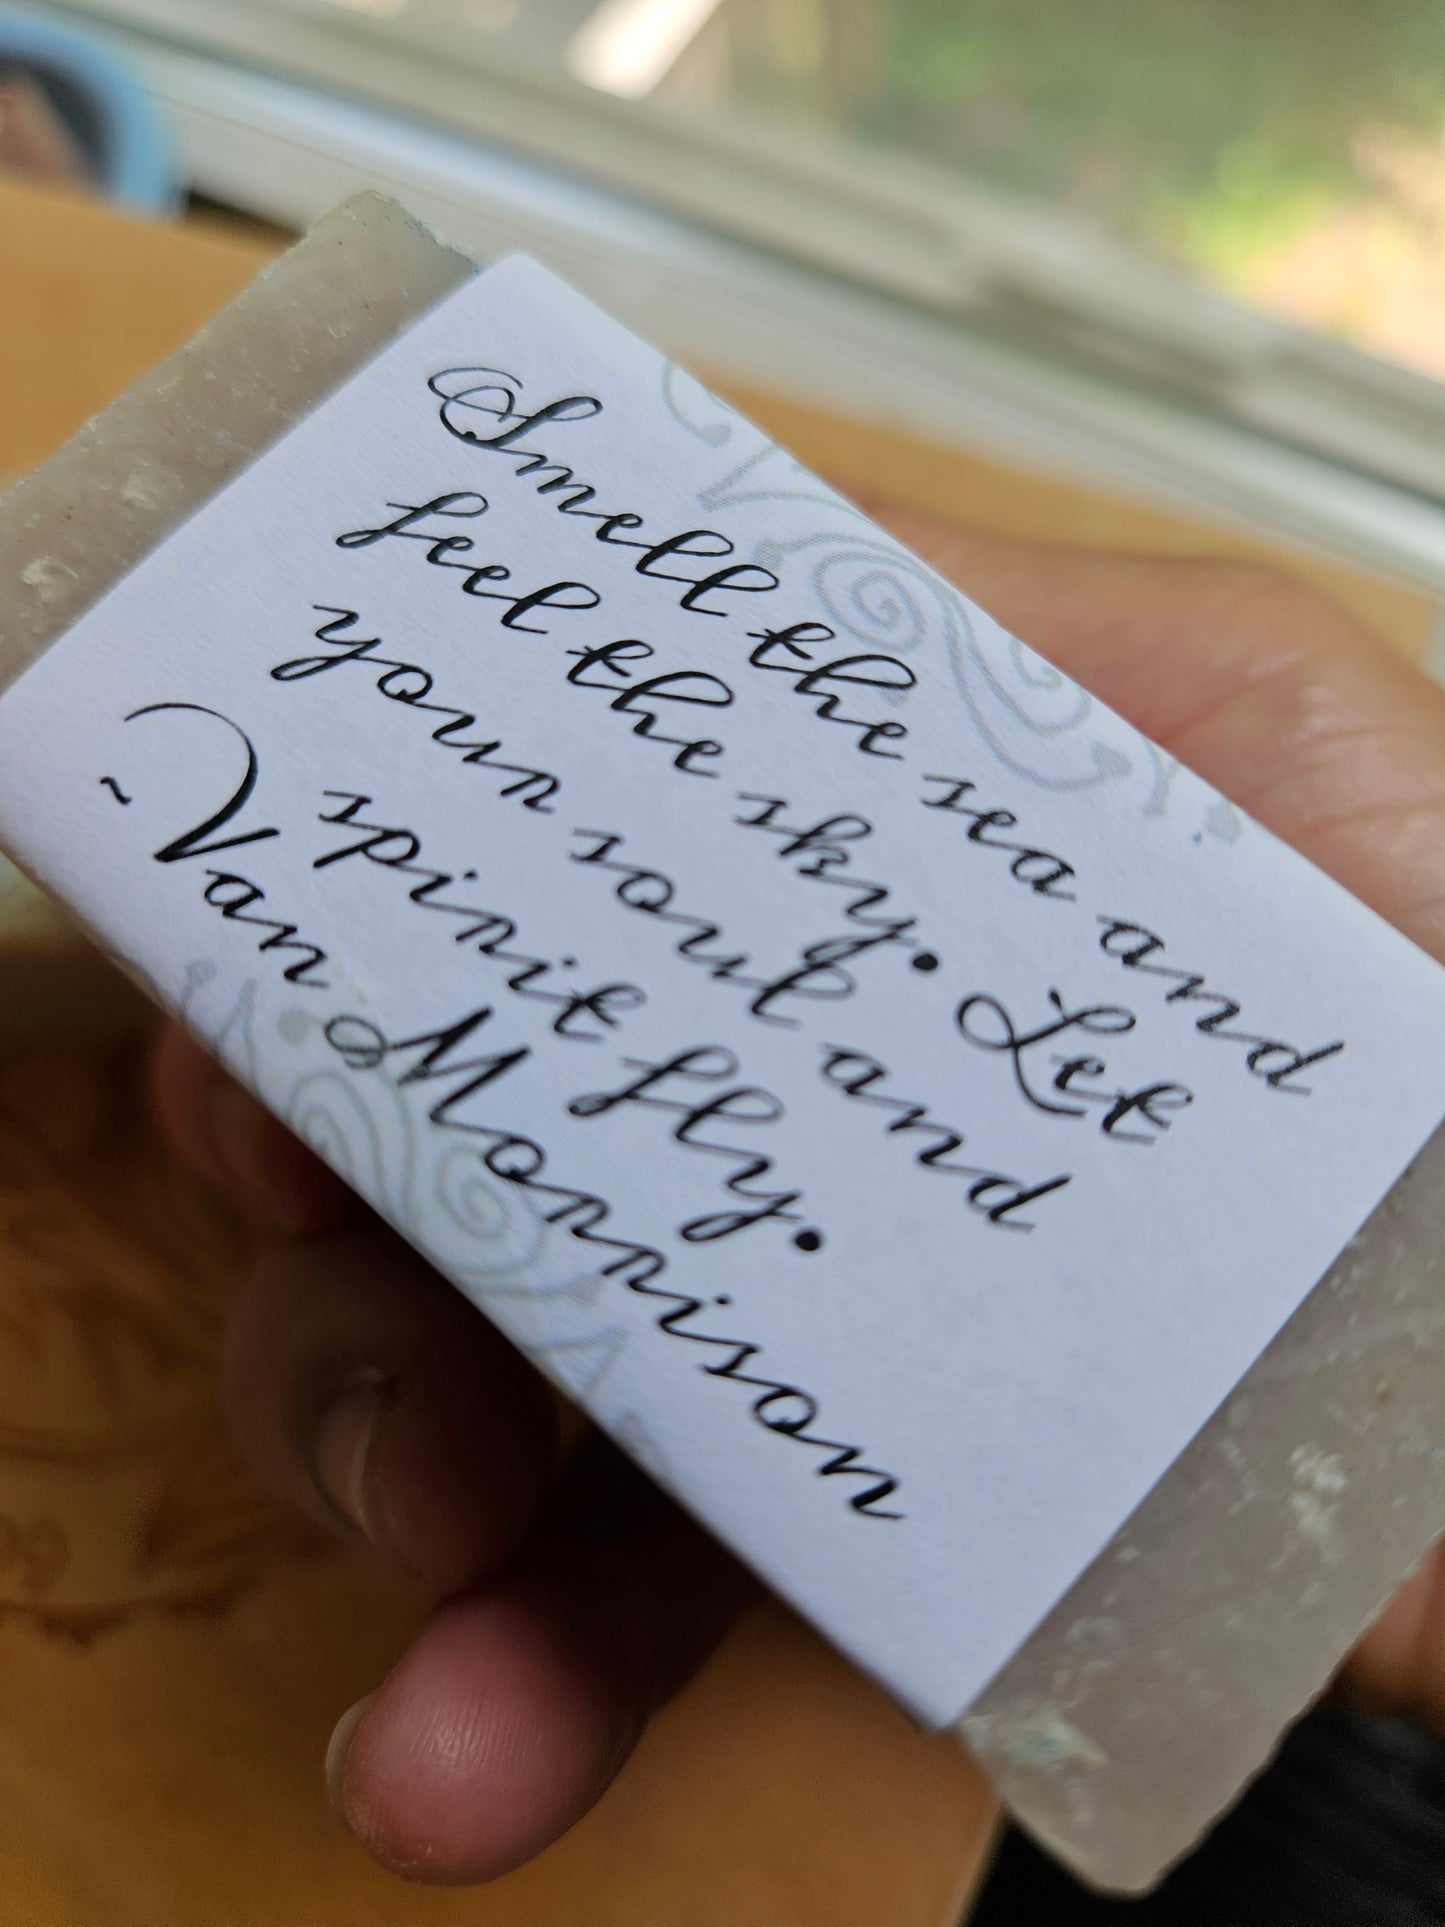 Smell the sea and
feel the sky. Let
your soul and
spirit fly.
~Van Morrison